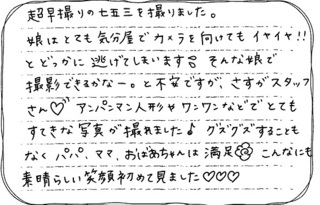 超早撮りの七五三を撮りました。
娘はとても気分屋でカメラを向けてもイヤイヤ!!
とどっかに逃げてしまいます。そんな娘で
撮影できるかなー。と不安ですが、さすがスタッフ
さん♡ アンパンマン人形やワンワンなどでとても
すてきな写真が撮れました♪ グズグズすることも
なくパパ、ママ、おばあちゃんは満足 こんなにも
素晴らしい笑顔初めて見ました♡♡♡